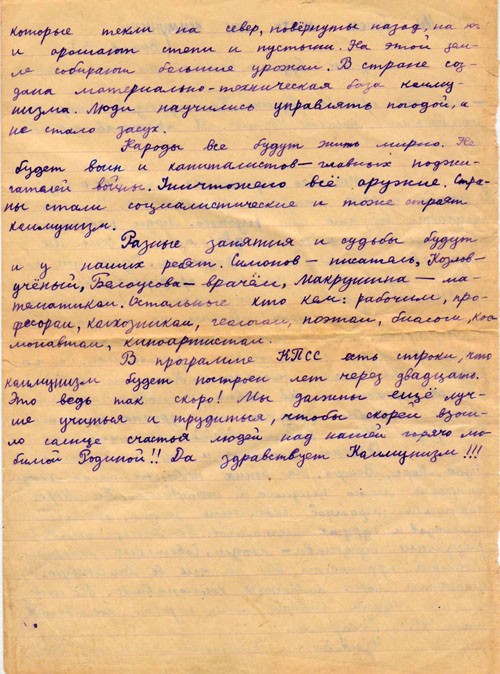 которые текли на север, повёрнуты назад, на юг
и орошают степи и пустыни. На этой зем-
ле собирают большие урожаи. В стране соз-
дана материально-техническая база комму-
низма. Люди научились управлять погодой, и
не стало засух.
Народы все будут жить мирно. Не
будет войн и капиталистов – главных поджи-
гателей войны. Уничтожено всё оружие. Стра-
ны стали социалистические и тоже строят
коммунизм.
Разные занятия и судьбы будут
и у наших ребят. Симонов – писатель, Козлов –
учёный, Белоусова – врачём, Макрушина – ма-
тематиком. Остальные кто кем: рабочим, про-
фессором, колхозником, геологом, поэтом, биологом, кос
монавтом, киноартистом.
В программе КПСС есть строки, что
коммунизм будет построен лет через двадцать.
Это ведь так скоро! Мы должны ещё луч-
ше учиться и трудиться, чтобы скорей взош-
ло солнце счастья людей над нашей горячо лю-
бимой Родиной!! Да здравствует Коммунизм!!!